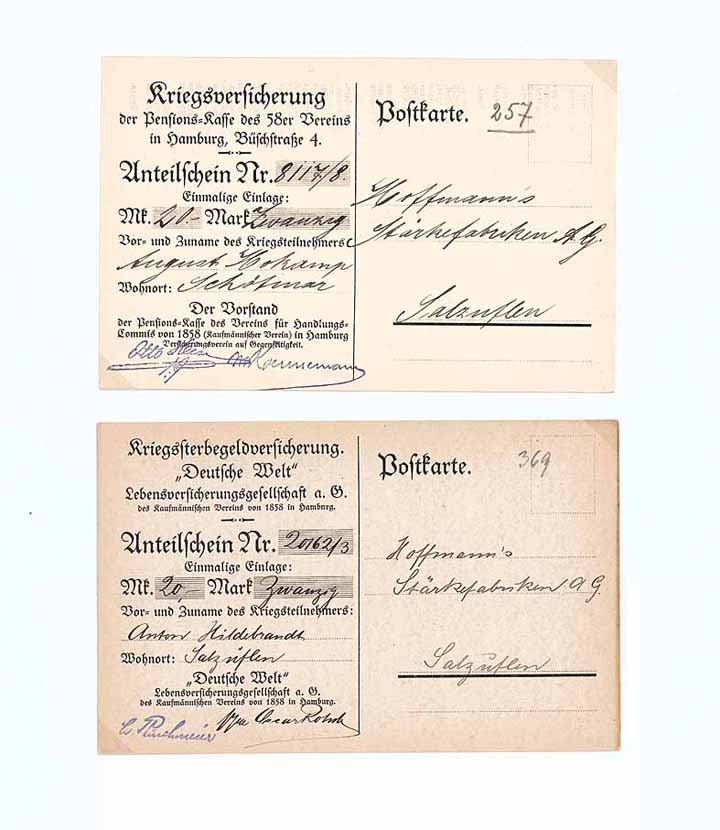 Kriegsversicherung
der Pensions-Kasse des 58er Vereins
in Hamburg, Büschstraße 4.
Anteilschein Nr. 8117/8.
Einmalige Einlage:
Mk. 20.- Mark Zwanzig
Vor- und Zuname des Kriegsteilnehmers
August Hokamp
Wohnort: Schötmar
Der Vorstand
der Pensions-Kasse des Vereins für Handlungs-
Commis von 1858 (Kaufmännischer Verein) in Hamburg
Versicherungsverein auf Gegenseitigkeit.
Otto
Postkarte. 257
Hoffmann's
Stärkefabriken A.G.
Salzuflen
Kriegssterbegeldversicherung.
„Deutsche Welt"
Lebensversicherungsgesellschaft a. G.
des Kaufmännischen Vereins von 1858 in Hamburg.
Anteilschein Nr. 20162/3
Einmalige Einlage:
Mk. 20,- Mark Zwanzig
Vor- und Zuname des Kriegsteilnehmers:
Anton Hildebrandt
Wohnort: Salzuflen
„Deutsche Welt"
Lebensversicherungsgesellschaft a. G.
des Kaufmännischen Vereins von 1858 in Hamburg.
Oscar
Postkarte. 369
Hoffmann's
Stärkefabriken A G.
Salzuflen